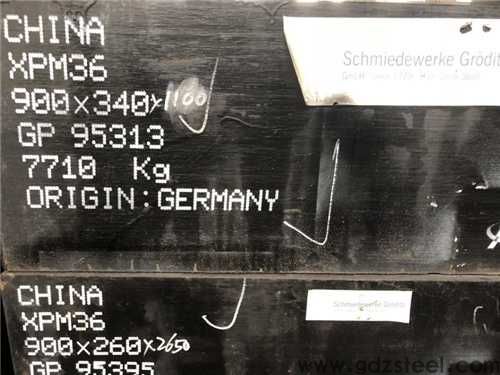 CHINA
XPM36
900x340x1100
GP 95313
7710 Kg
ORIGIN:GERMANY
Schmiedewerke Grödit
CHINA
XPM36
900x260x2650
GP 95395
Schmiedewerke Gröditz
www.gdzsteel.com